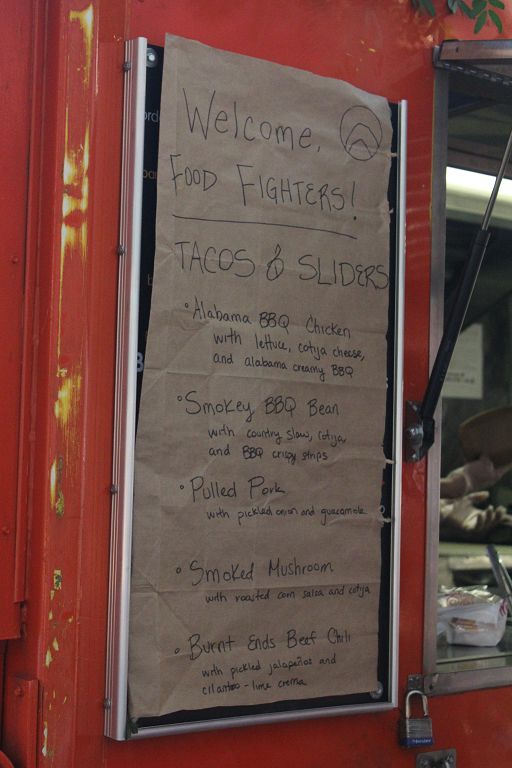 Welcome,
FOOD FIGHTERS!
TACOS & SLIDERS
• Alabama BBQ Chicken
with lettuce, cotija cheese,
and alabama creamy BBQ
• Smokey BBQ Bean
with country slaw, cotija,
and BBQ crispy strips
• Pulled Pork
with pickled onion and guacamole
• Smoked Mushroom
with roasted corn salsa and cotija
• Burnt Ends Beef Chili
with pickled jalapeños and
cilantro-lime crema